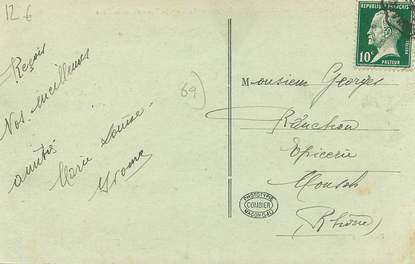 12.6
REPUBLIQUE FRANÇAISE
10c
PASTEUR
Reçois
Nos meilleures
amitiés
Marie Louise
Yvonne
69
Monsieur Georges
Epicerie
Rhône
PHOTOTYPIE
COMBIER
MACON